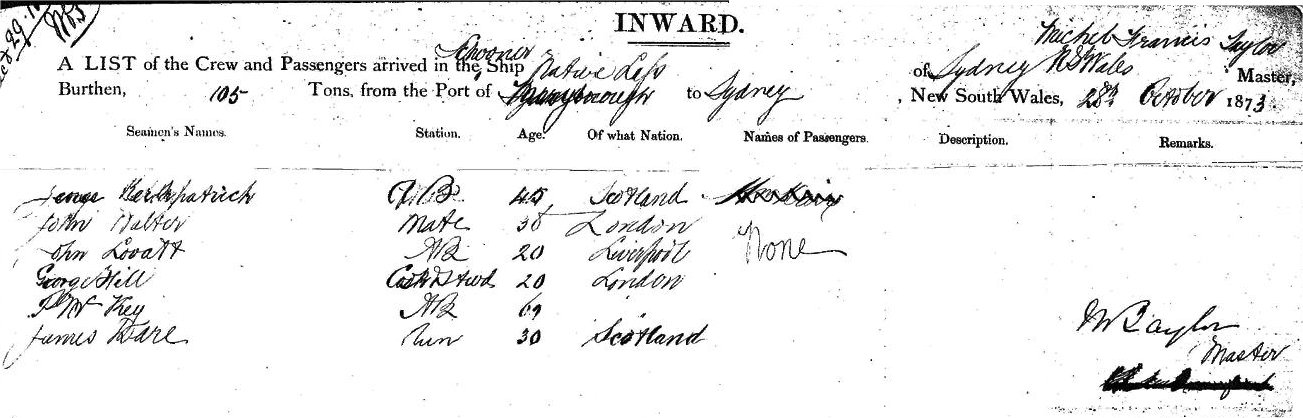 INWARD.
Michel Francis Taylor
A LIST of the Crew and Passengers arrived in the Schooner Ship Native Lass of Sydney NSWales Master,
Burthen, 105 Tons, from the Port of Maryborough to Sydney, New South Wales, 28th October 1873
Seamen's Names. Station. Age. Of what Nation. Names of Passengers. Description. Remarks.
James Kerkpatrick AB 45 Scotland
John Walter Mate 38 London None
John Lovatt AB 20 Liverpool
George Hill Cook & Stwd 20 London
Key AB
James Dare 30 Scotland
M Taylor
Master